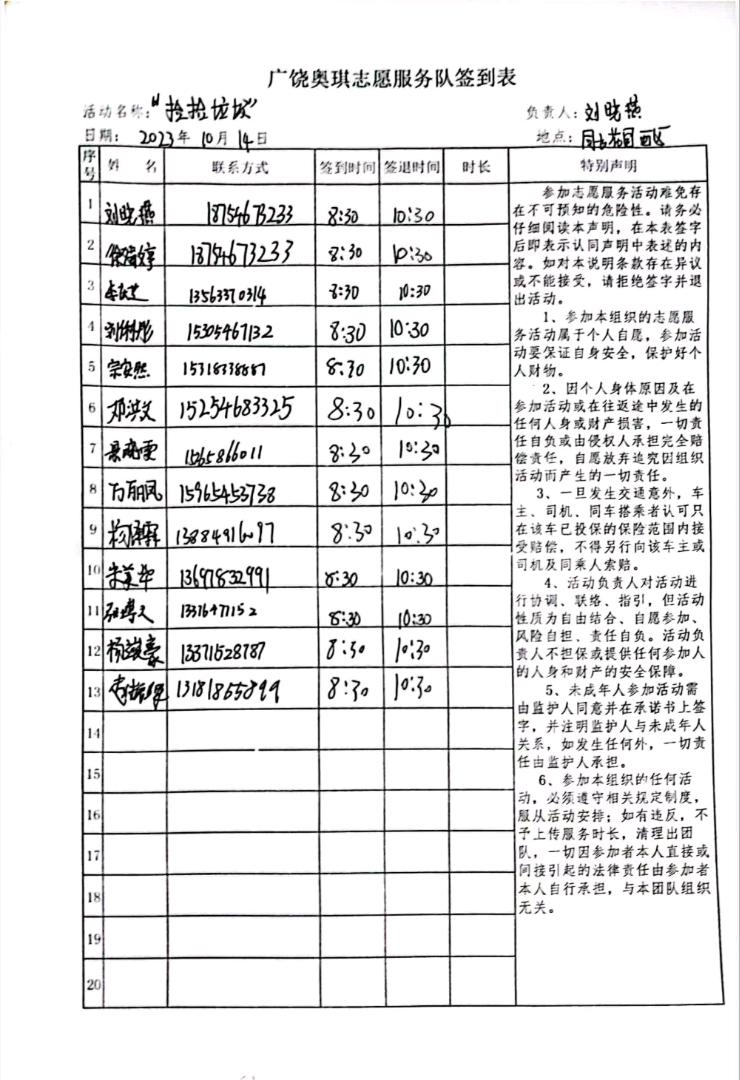 广饶奥琪志愿服务队签到表
活动名称：“捡捡垃圾”
负责人：刘晓燕
日期： 2023年 10月 14日
地点： 花园西区
序号 姓 名 联系方式 签到时间 签退时间 时长 特别声明
1 刘晓燕 18754673233 8:30 10:30
2 18754673233 8:30 10:30
3 13563370314 8:30 10:30
4 15305467132 8:30 10:30
5 宗安然 15318338887 8:30 10:30
6 邓洪文 15254683325 8:30 10:30
7 1565866011 8:30 10:30
8 万丽凤 15965453738 8:30 10:30
9 13884916097 8:30 10:30
10 宋美华 13697832991 8:30 10:30
11 13316477152 8:30 10:30
12 杨竣豪 13371528787 8:30 10:30
13 13181855899 8:30 10:30
14
15
16
17
18
19
20
参加志愿服务活动难免存
在不可预知的危险性。请务必
仔细阅读本声明，在本表签字
后即表示认同声明中表述的内
容。如对本说明条款存在异议
或不能接受，请拒绝签字并退
出活动。
1、参加本组织的志愿服
务活动属于个人自愿，参加活
动要保证自身安全，保护好个
人财物。
2、因个人身体原因及在
参加活动或在往返途中发生的
任何人身或财产损害，一切责
任自负或由侵权人承担完全赔
偿责任，自愿放弃追究因组织
活动而产生的一切责任。
3、一旦发生交通意外，车
主、司机、同车搭乘者认可只
在该车已投保的保险范围内接
受赔偿，不得另行向该车主或
司机及同乘人索赔。
4、活动负责人对活动进
行协调、联络、指引，但活动
性质为自由结合、自愿参加、
风险自担、责任自负。活动负
责人不担保或提供任何参加人
的人身和财产的安全保障。
5、未成年人参加活动需
由监护人同意并在承诺书上签
字，并注明监护人与未成年人
关系，如发生任何外，一切责
任由监护人承担。
6、参加本组织的任何活
动，必须遵守相关规定制度，
服从活动安排；如有违反，不
予上传服务时长，清理出团
队，一切因参加者本人直接或
间接引起的法律责任由参加者
本人自行承担，与本团队组织
无关。